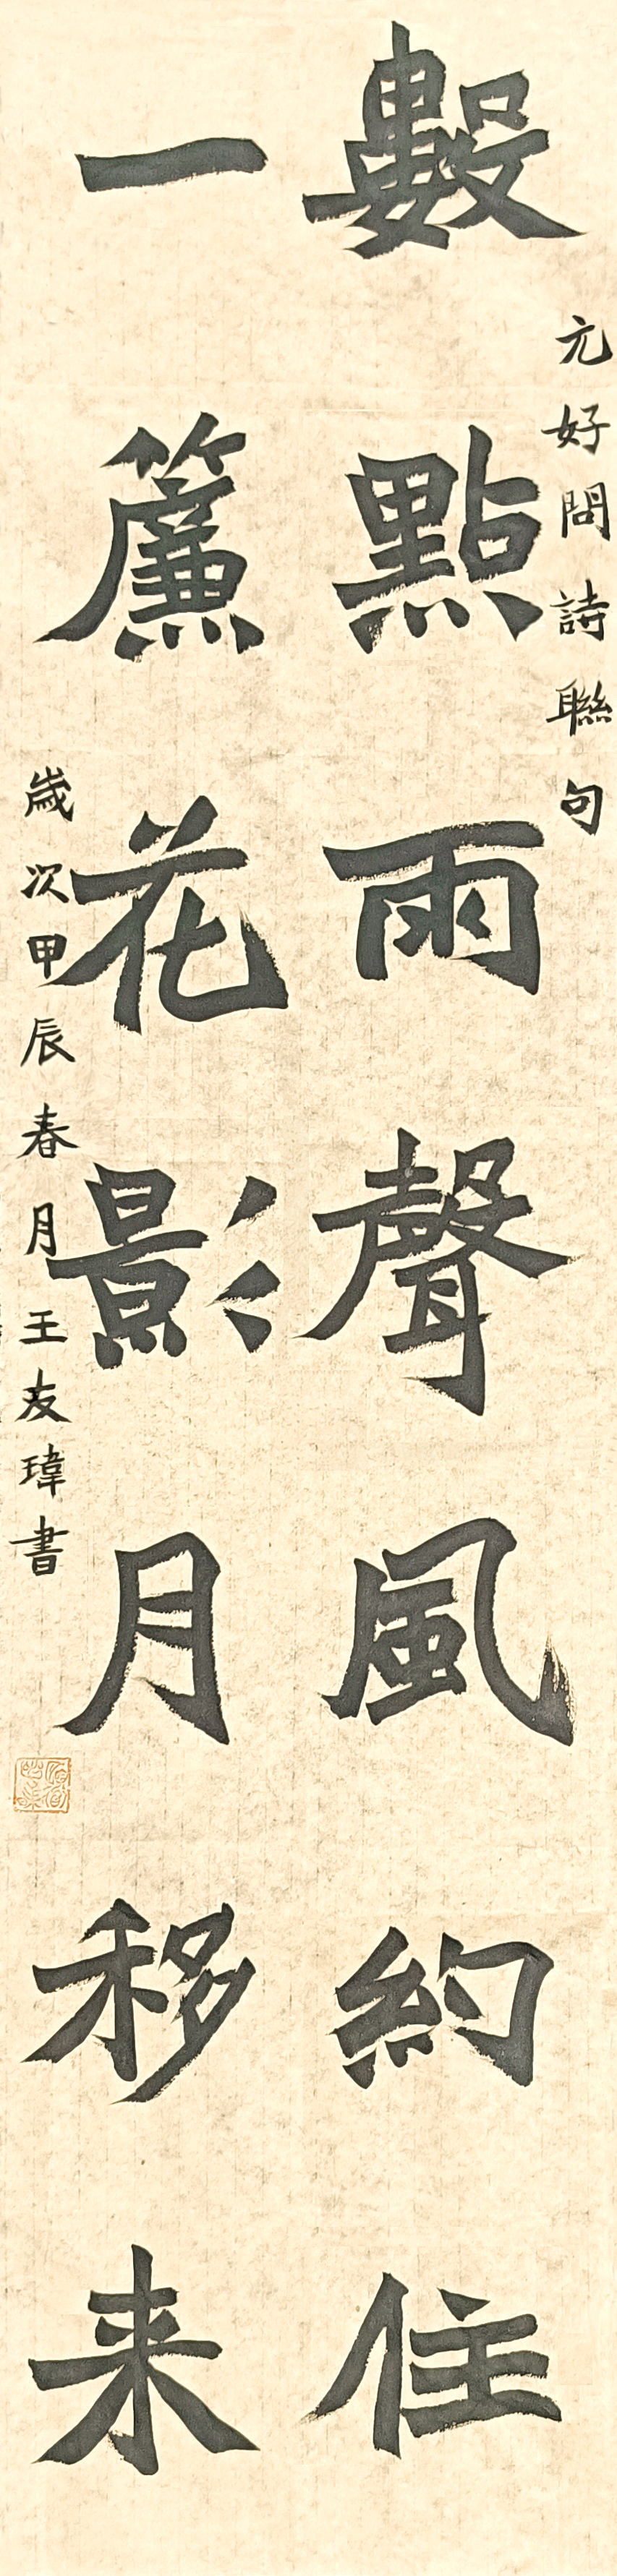 元好問詩聯句
數點雨聲風約住
一簾花影月移来
歲次甲辰春月王友瑋書